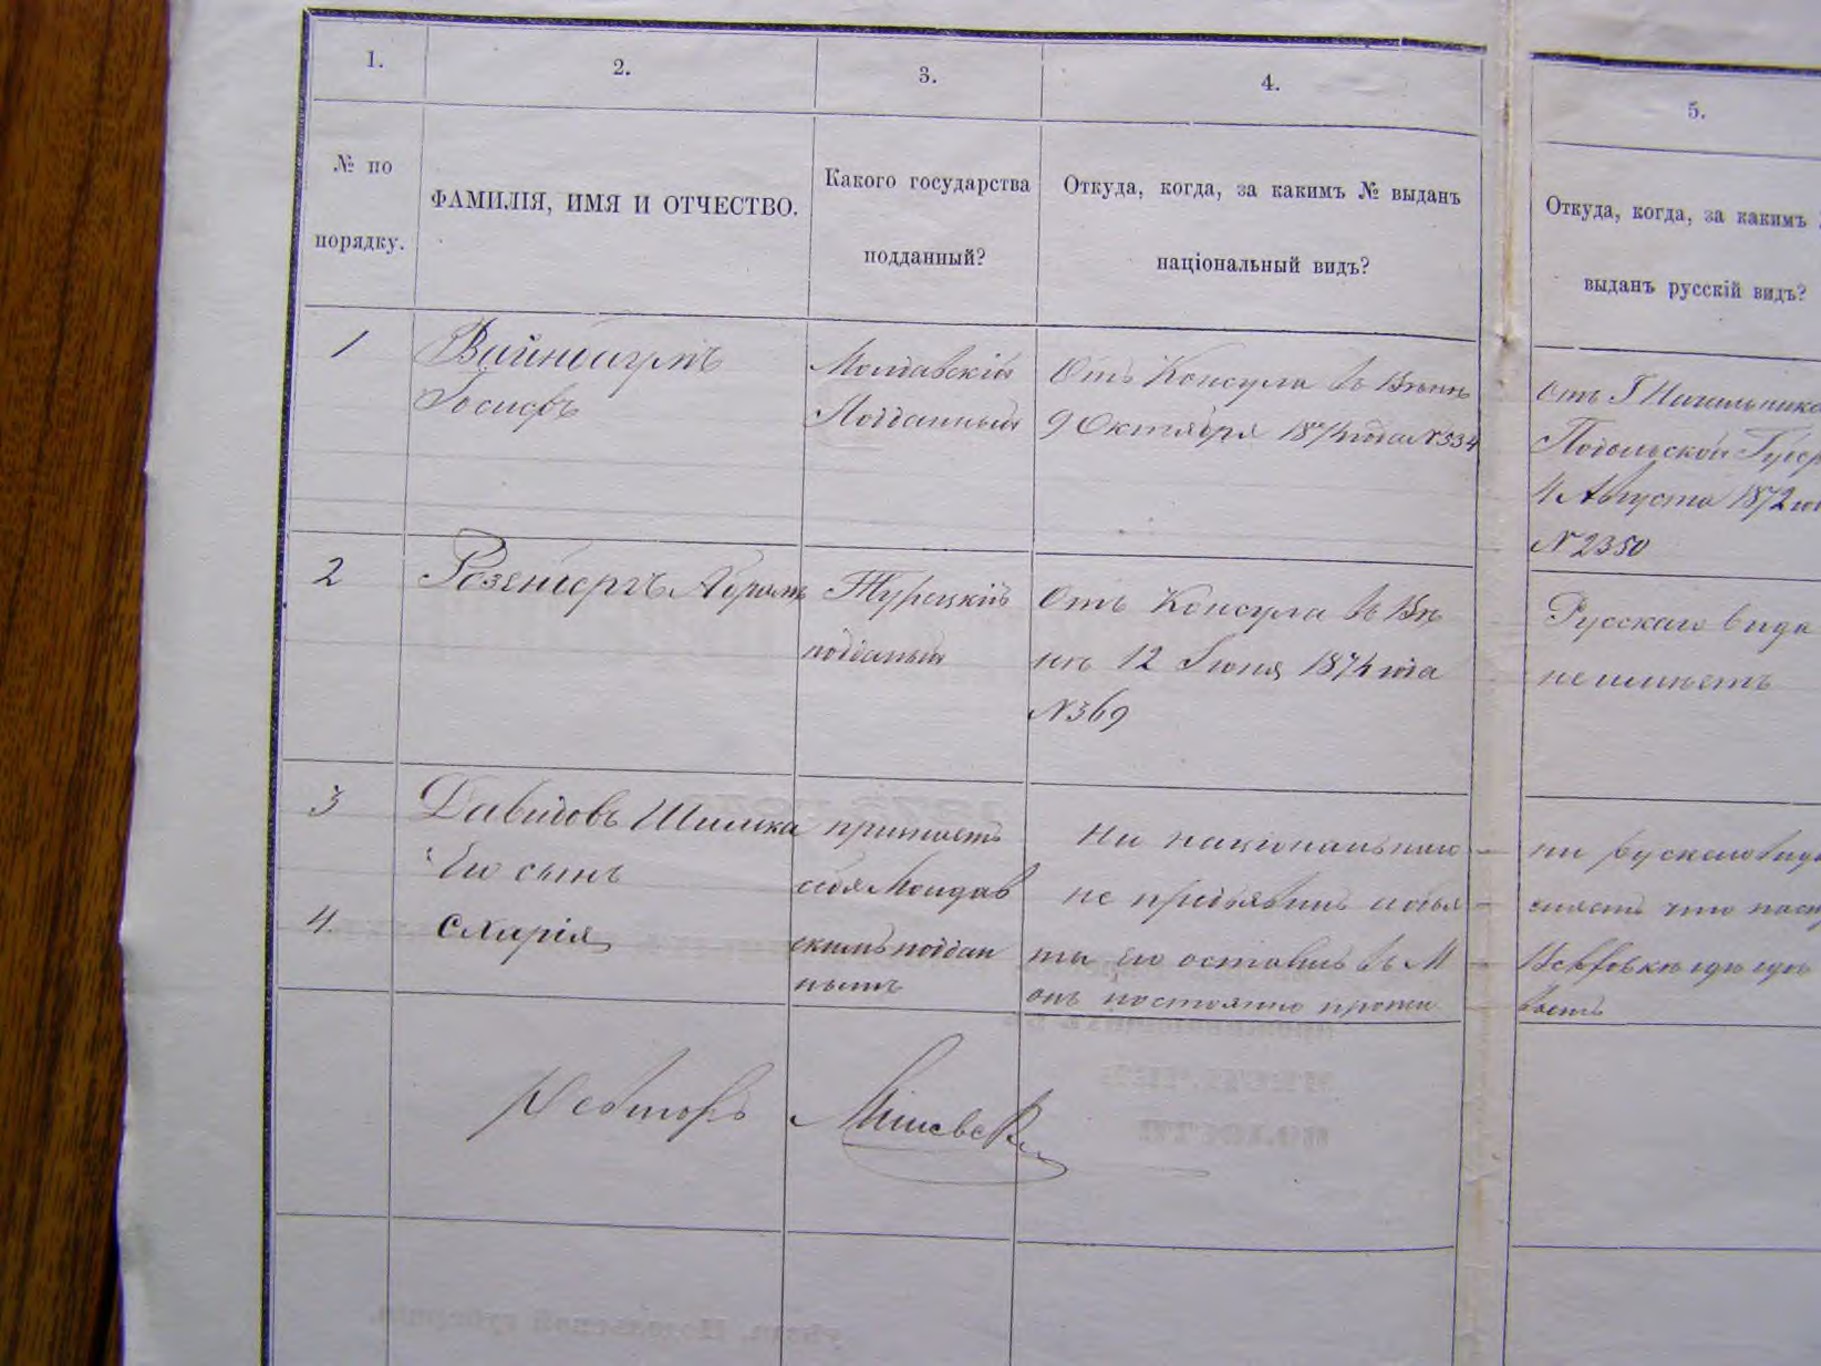 1.
2.
3.
4.
5.
№ по
порядку.
ФАМИЛІЯ, ИМЯ И ОТЧЕСТВО.
Какого государства
подданный?
Откуда, когда, за какимъ № выданъ
національный видъ?
Откуда, когда, за какимъ
выданъ русскій видъ?
1
Іосифъ
Молдавскій
Подданный
Отъ Консула въ Вѣнѣ
9 Октября 1874 года № 334
Отъ Г Начальника
Подольской Губер
4 Августа 1872 го
№ 2350
2
Розенберг Абрамъ
Турецкій
подданый
Отъ Консула въ Вѣ
нѣ 12 Іюня 1874 года
№ 369
Русскаго вида
не имѣетъ
3
Давидовъ Шимка
Его сынъ
4.
Марія
себя Молдав
скимъ поддан
нымъ
Ни національнаго
не предъявилъ а объя
ты его оставилъ въ М
онъ постоянно прожи
ни рускаго вида
сняетъ что пасп
ваетъ